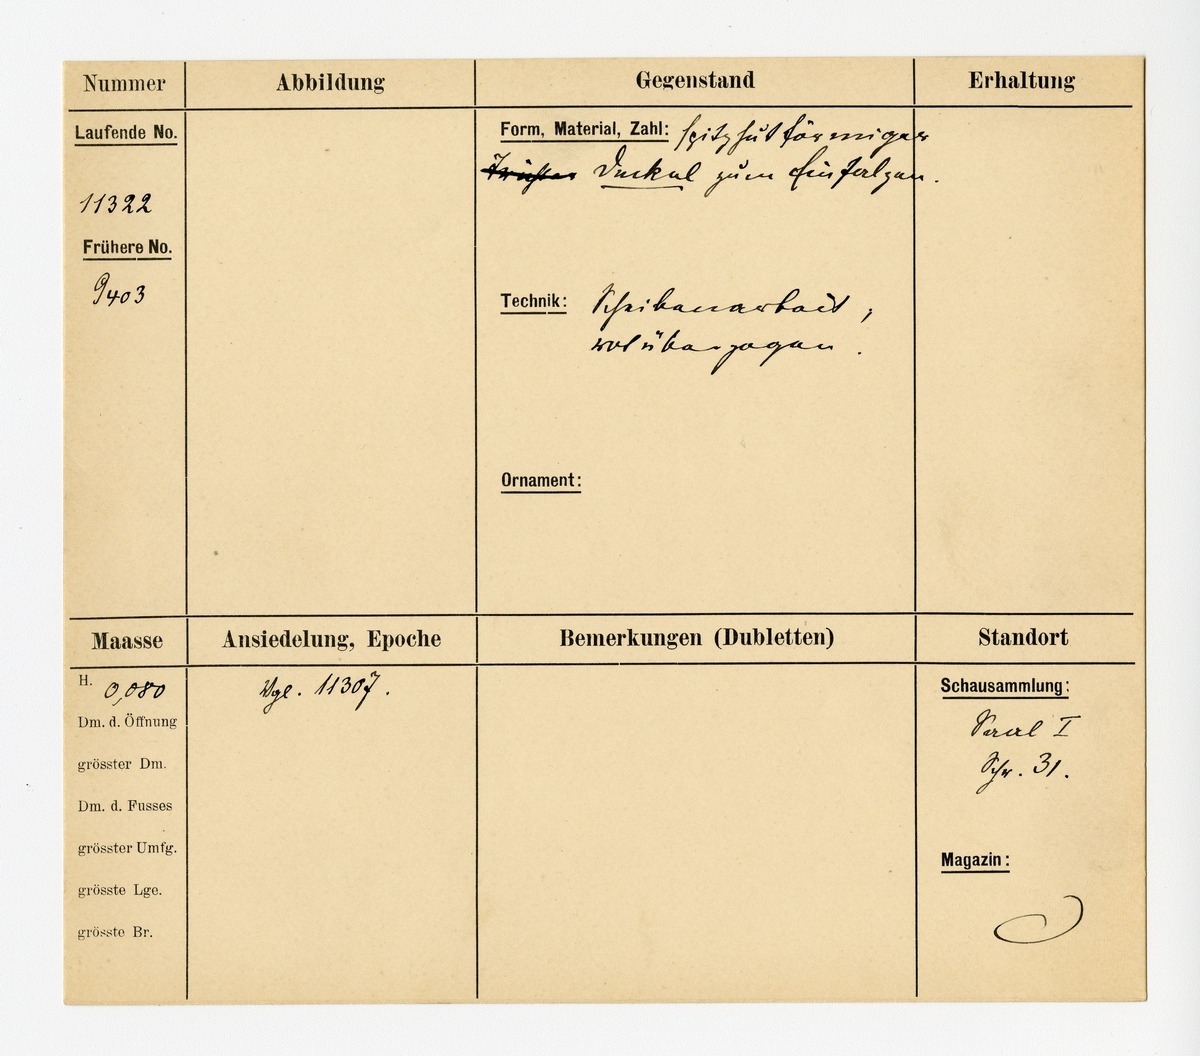 Nummer
Abbildung
Gegenstand
Erhaltung
Laufende No.
11322
Frühere No.
9403
Form, Material, Zahl: spitzhutförmiger
Deckel zum Einfalzen.
Technik: Scheibenarbeit;
rot überzogen.
Ornament:
Maasse
Ansiedelung, Epoche
Bemerkungen (Dubletten)
Standort
H. 0,080
Dm. d. Öffnung
grösster Dm.
Dm. d. Fusses
grösster Umfg.
grösste Lge.
grösste Br.
Vgl. 11307.
Schausammlung:
Saal I
Schr. 31.
Magazin: